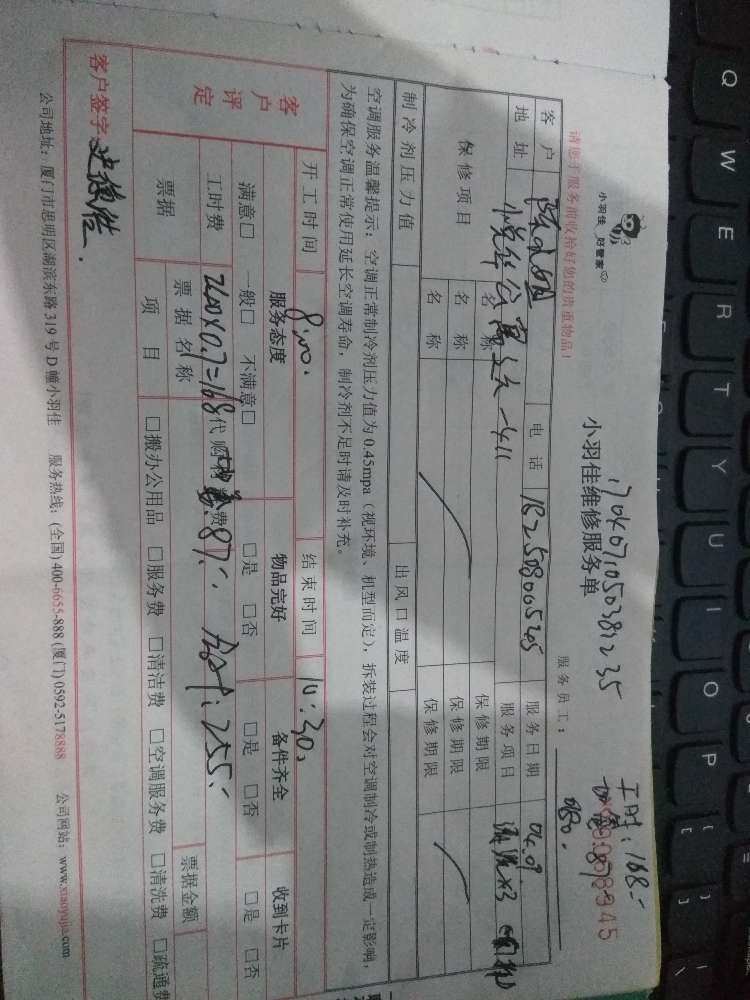 小羽佳 好管家
请您于服务前收拾好您的贵重物品!
小羽佳维修服务单
服务员工:
工时:168.-
客户
电话 182508005265
服务日期 04.09
地址
服务项目
保修项目
名称
保修期限
名称
保修期限
名称
保修期限
制冷剂压力值
出风口温度
空调服务温馨提示:空调正常制冷剂压力值为0.45mpa(视环境、机型而定),拆装过程会对空调制冷或制热造成一定影响,
为确保空调正常使用延长空调寿命,制冷剂不足时请及时补充。
开工时间 8:00.
结束时间 10:30.
客户评定
服务态度
物品完好
备件齐全
收到卡片
满意□ 一般□ 不满意□
□是 □否
□是 □否
□是 □否
工时费 240×0.7=168
87.- 255.-
票据
票据名称
票据金额
项目
□搬办公用品 □服务费 □清洁费 □空调服务费 □清洗费 □疏通费
客户签字
公司地址:厦门市思明区湖滨东路319号D幢小羽佳 服务热线:(全国)400-6655-888(厦门)0592-5178888 公司网站:www.xiaoyujia.com
Q W E R T Y U I O P